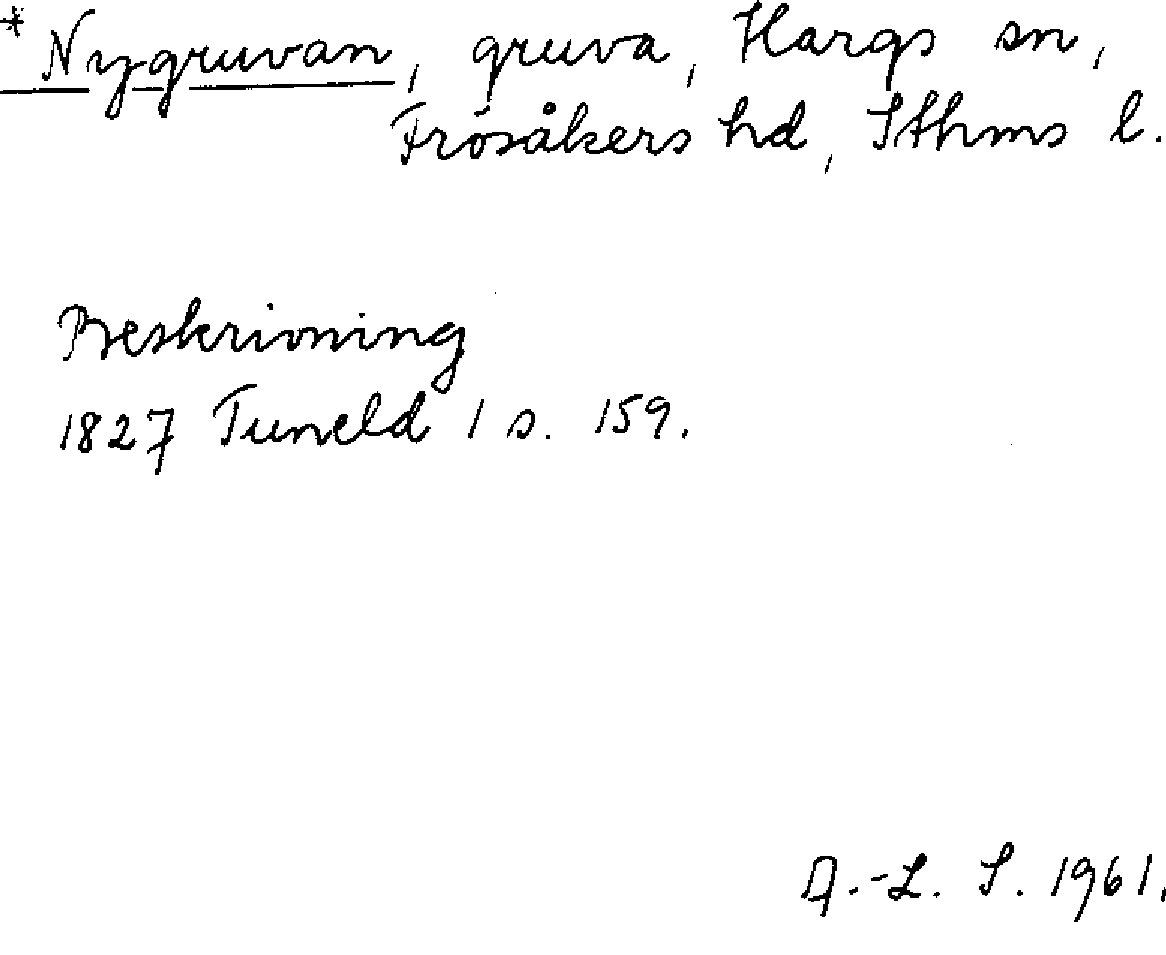 * Nygruvan, gruva, Hargs sn,
Frösåkers hd, Sthms l.
Beskrivning
1827 Tuneld 1 s. 159.
A.-L. S. 1961.